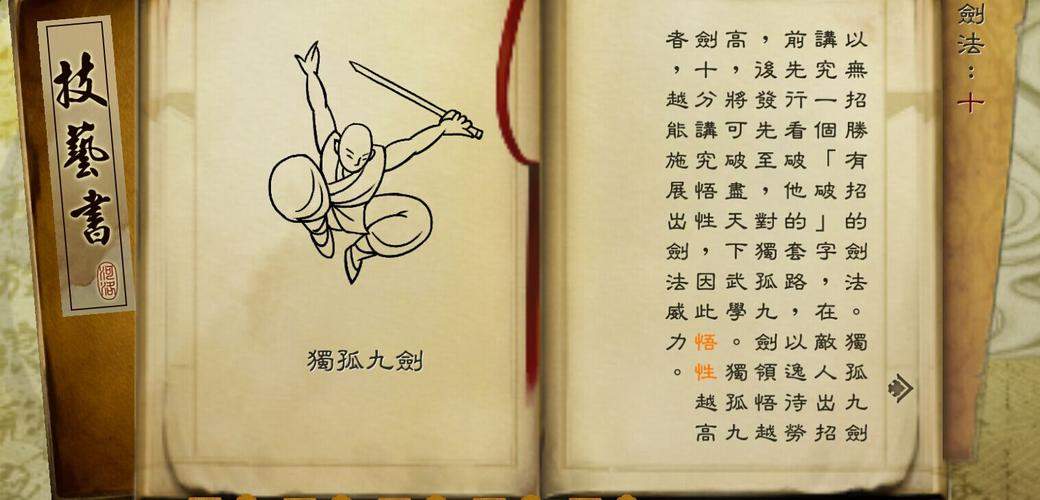 劍法：十
以無招勝有招的劍法。獨孤九劍
講究一個「破」字，在敵人出招
前先行看破他的套路，以逸待勞
，後發先至，對獨孤九劍領悟越
高，將可破盡天下武學。獨孤九
劍十分講究悟性，因此悟性越高
者，越能施展出劍法威力。
獨孤九劍
技藝書
河洛